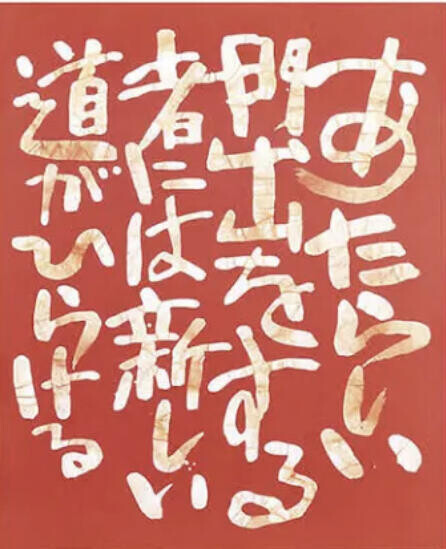 あたらしい
門出をする
者には新しい
道がひらける